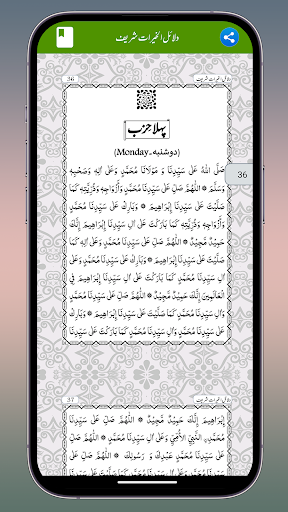 دلائل الخیرات شریف
36 دلائل الخیرات شریف
پہلا حزب
(دوشنبہ۔Monday)
صَلَّی اللهُ عَلٰی سَيِّدِنَا وَ مَوْلَانَا مُحَمَّدٍ وَعَلٰی اٰلِهٖ وَصَحْبِهٖ
36
وَسَلَّمَ ۞ اَللّٰهُمَّ صَلِّ عَلٰی سَيِّدِنَا مُحَمَّدٍ وَأَزْوَاجِهٖ وَذُرِّيَّتِهٖ كَمَا
صَلَّيْتَ عَلٰی سَيِّدِنَا إِبْرَاهِيمَ ۞ وَبَارِكْ عَلٰی سَيِّدِنَا
مُحَمَّدٍ وَأَزْوَاجِهٖ وَذُرِّيَّتِهٖ كَمَا بَارَكْتَ عَلٰی سَيِّدِنَا إِبْرَاهِيمَ إِنَّكَ
حَمِيْدٌ مَّجِيْدٌ ۞ اَللّٰهُمَّ صَلِّ عَلٰی سَيِّدِنَا مُحَمَّدٍ وَعَلٰی اٰلِ سَيِّدِنَا مُحَمَّدٍ كَمَا
صَلَّيْتَ عَلٰی سَيِّدِنَا إِبْرَاهِيمَ ۞ وَبَارِكْ عَلٰی سَيِّدِنَا مُحَمَّدٍ وَّعَلٰی
اٰلِ سَيِّدِنَا مُحَمَّدٍ كَمَا بَارَكْتَ عَلٰی اٰلِ سَيِّدِنَا إِبْرَاهِيمَ فِی
الْعَالَمِيْنَ إِنَّكَ حَمِيْدٌ مَّجِيْدٌ ۞ اَللّٰهُمَّ صَلِّ عَلٰی سَيِّدِنَا مُحَمَّدٍ وَّاٰلِ
سَيِّدِنَا مُحَمَّدٍ كَمَا صَلَّيْتَ عَلٰی سَيِّدِنَا إِبْرَاهِيمَ ۞ وَبَارِكْ
عَلٰی سَيِّدِنَا مُحَمَّدٍ وَاٰلِ سَيِّدِنَا مُحَمَّدٍ كَمَا بَارَكْتَ عَلٰی سَيِّدِنَا
37 دلائل الخیرات شریف
إِبْرَاهِيمَ إِنَّكَ حَمِيْدٌ مَّجِيْدٌ ۞ اَللّٰهُمَّ صَلِّ عَلٰی سَيِّدِنَا
مُحَمَّدِنِ النَّبِیِّ الْأُمِّیِّ وَعَلٰی اٰلِ سَيِّدِنَا مُحَمَّدٍ ۞ اَللّٰهُمَّ صَلِّ عَلٰی
سَيِّدِنَا مُحَمَّدٍ عَبْدِكَ وَ رَسُوْلِكَ ۞ اَللّٰهُمَّ صَلِّ عَلٰی